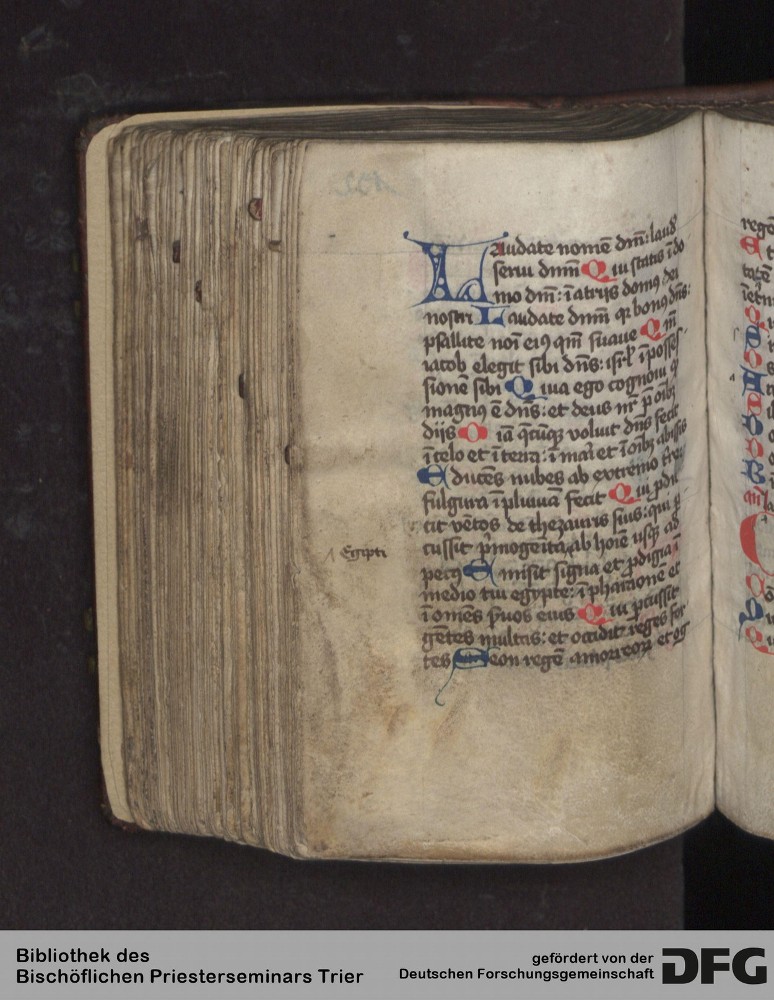 Laudate nomē dnī: laud
serui dnm̄ Qui statis ī do
mo dnī: ī atriis domus dei
nostri Laudate dnm̄ qr bonꝰ dns̄:
psallite noī eiꝰ qm̄ suaue Qm̄
iacob elegit sibi dns̄: isrl̄ ī posses
sionē sibi Quia ego cognoui q
magnꝰ ē dns̄: et deus nr̄ p̄ oībꝫ
diis Oīa q̄cūqꝫ voluit dns̄ fecit
ī celo et ī terra: ī mari et ī oībꝫ abissis
Educēs nubes ab extremo
fulgura ī pluuiā fecit Qui pdu
cit vētos de thezauris suis: qui p
cussit p̄mogeīta ab hoīe usqꝫ ad
pecꝰ Emisit signa et pdigia ī
Egipti
medio tui egypte: ī pharaonē et
ī omēs suos eius Qui pcussit
gētes multas: et occidit reges for
tes Seon regē amorreoꝝ et og
rege
Bibliothek des
Bischöflichen Priesterseminars Trier
gefördert von der
Deutschen Forschungsgemeinschaft
DFG